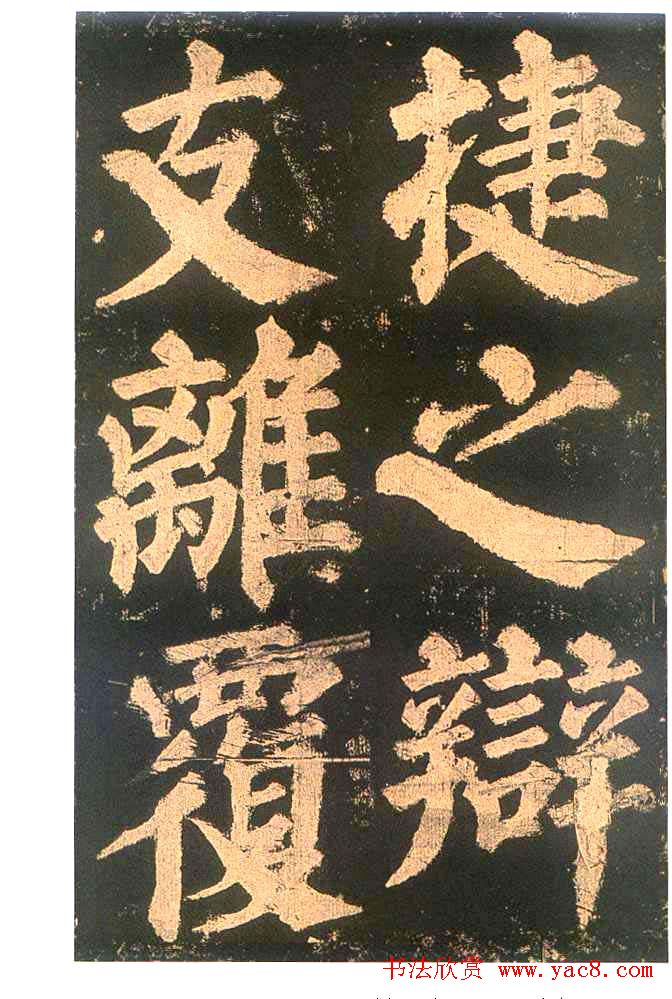 捷之辯
支離覆
书法欣赏 www.yac8.com